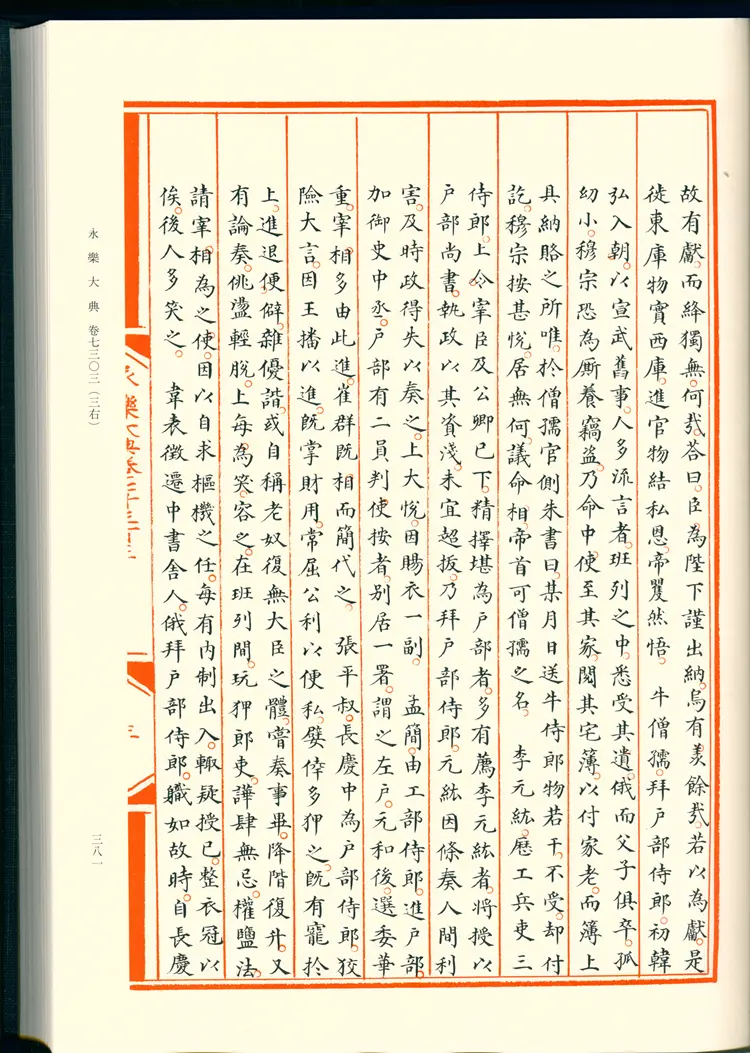 故有獻。而絳獨無。何哉。荅曰。臣為陛下謹出納。烏有羨餘哉。若以為獻。是
徙東庫物實西庫。進官物結私恩。帝瞿然悟。 牛僧孺。拜戶部侍郎。初韓
弘入朝。以宣武舊事。人多流言者。班列之中。悉受其遺。俄而父子俱卒。孤
幼小。穆宗恐為厮養竊盜。乃命中使至其家。閱其宅簿。以付家老。而簿上
具納賂之所。唯於僧孺官側朱書曰。某月日送牛侍郎物若干。不受。却付
訖。穆宗按甚悅。居無何。議命相。帝首可僧孺之名。 李元紘。歷工兵吏三
侍郎。上令宰臣及公卿已下。精擇堪為戶部者。多有薦李元紘者。將授以
戶部尚書。執政以其資淺。未宜超拔。乃拜戶部侍郎。元紘因條奏人間利
害。及時政得失以奏之。上大悅。因賜衣一副。 孟簡。由工部侍郎。進戶部。
加御史中丞。戶部有二員。判使按者。別居一署。謂之左戶。元和後。選委華
重。宰相多由此進。崔群既相而簡代之。 張平叔。長慶中為戶部侍郎。狡
險大言。因王播以進。既掌財用。常屈公利以便私。嬖倖多狎之。既有寵於
上。進退便僻。雜優諧。或自稱老奴。復無大臣之體。嘗奏事畢。降階復升。又
有論奏。佻盪輕脫。上每為笑。容之。在班列間。玩狎郎吏。譁肆無忌。榷鹽法。
請宰相為之使。因以自求樞機之任。每有內制出入。輒疑授已。整衣冠以
俟。後人多笑之。 韋表微。遷中書舍人。俄拜戶部侍郎。職如故。時自長慶
永樂大典卷七千三百三
三
永樂大典 卷七三〇三（三右）
三八一